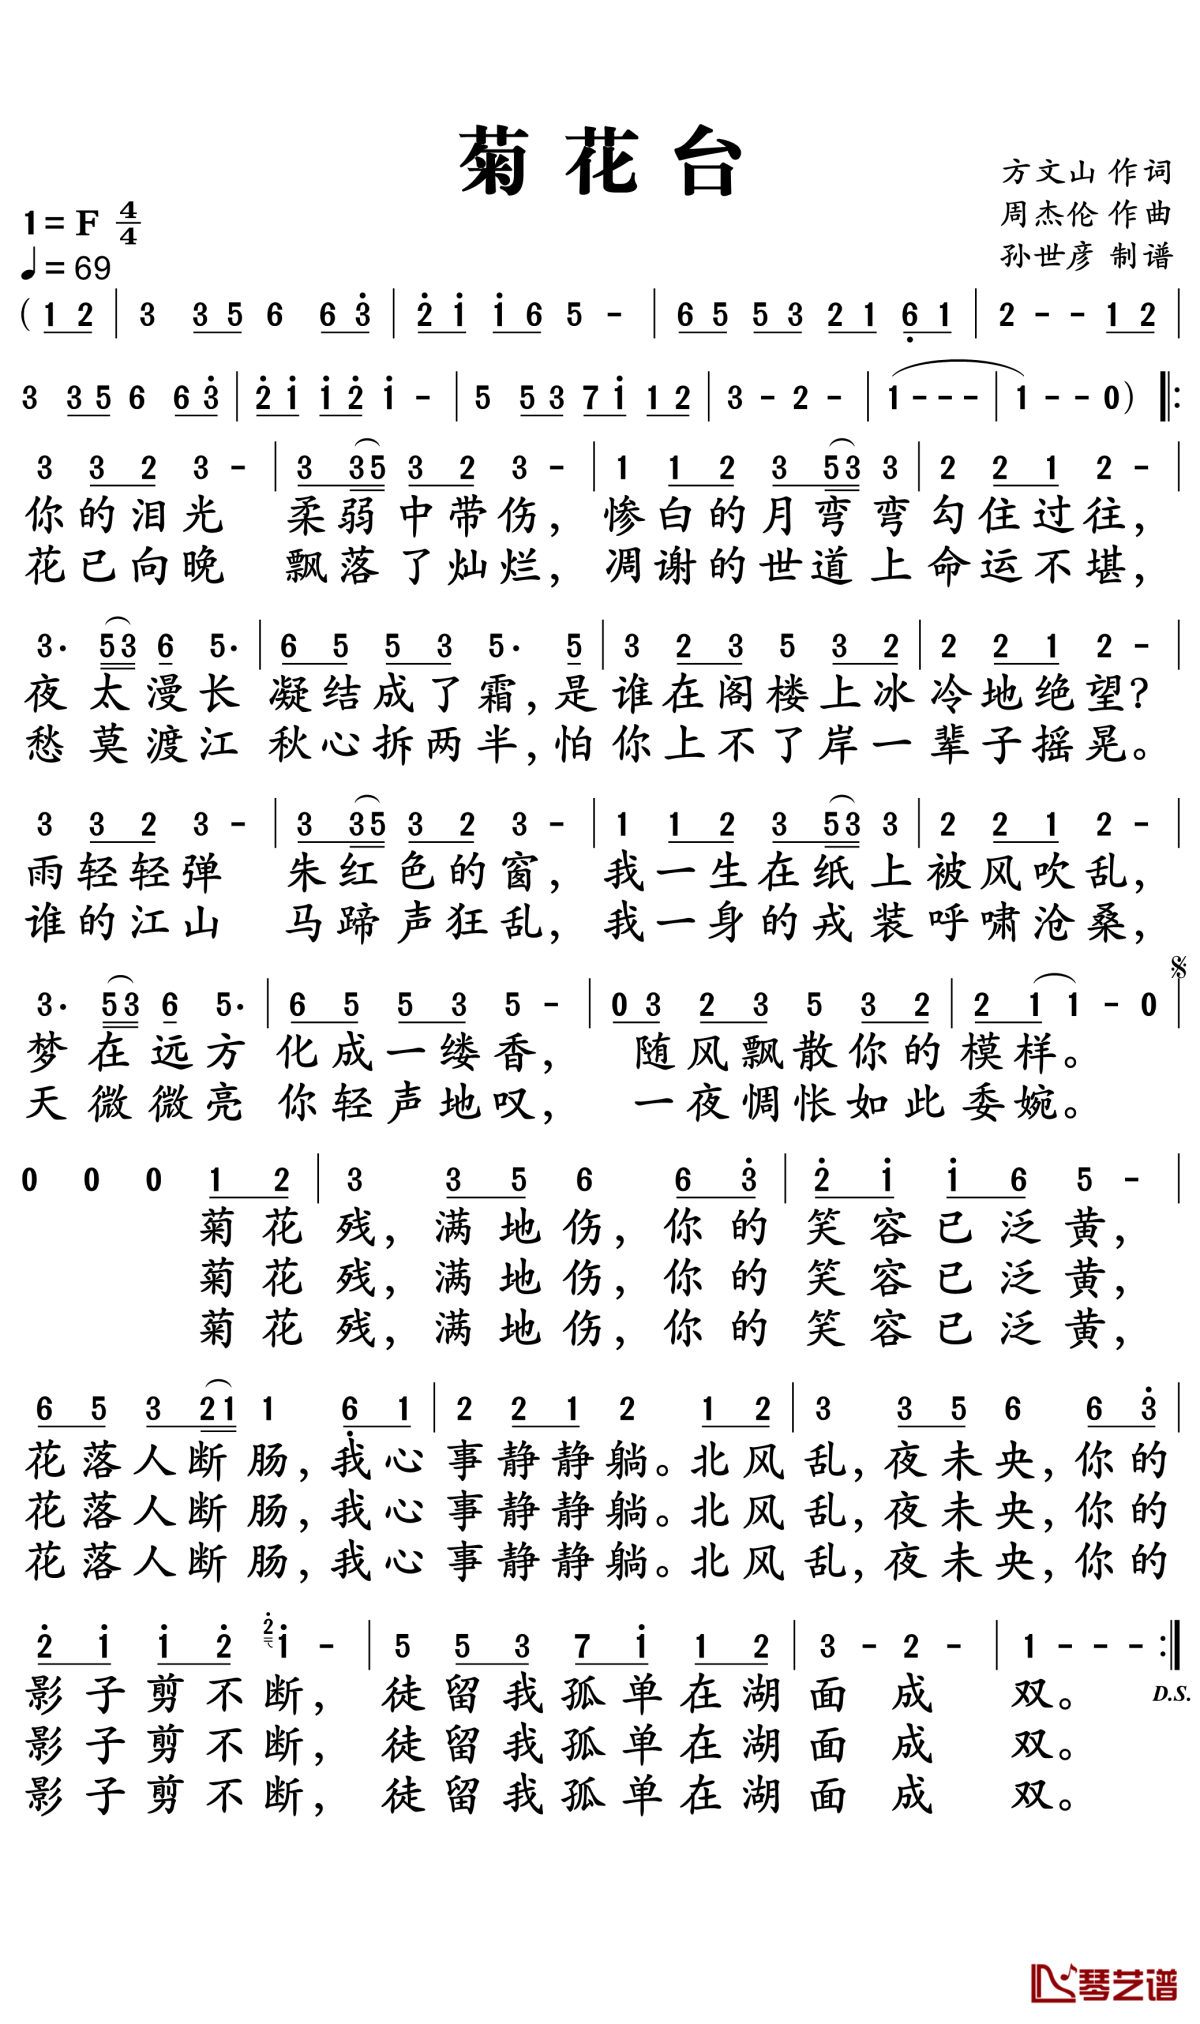 菊花台
方文山 作词
1=F 4/4
周杰伦 作曲
♩=69
孙世彦 制谱
( 1 2 | 3 3 5 6 6 3̇ | 2̇ 1̇ 1̇ 6 5 - | 6 5 5 3 2 1 6̣ 1 | 2 - - 1 2 |
3 3 5 6 6 3̇ | 2̇ 1̇ 1̇ 2̇ 1̇ - | 5 5 3 7 1̇ 1 2 | 3 - 2 - | 1 - - - | 1 - - 0 ) ‖:
3 3 2 3 - | 3 3 5 3 2 3 - | 1 1 2 3 5 3 3 | 2 2 1 2 - |
你的泪光 柔弱中带伤，惨白的月弯弯勾住过往，
花已向晚 飘落了灿烂，凋谢的世道上命运不堪，
3· 5 3 6 5· | 6 5 5 3 5· 5 | 3 2 3 5 3 2 | 2 2 1 2 - |
夜太漫长 凝结成了霜，是谁在阁楼上冰冷地绝望？
愁莫渡江 秋心拆两半，怕你上不了岸一辈子摇晃。
3 3 2 3 - | 3 3 5 3 2 3 - | 1 1 2 3 5 3 3 | 2 2 1 2 - |
雨轻轻弹 朱红色的窗，我一生在纸上被风吹乱，
谁的江山 马蹄声狂乱，我一身的戎装呼啸沧桑，
3· 5 3 6 5· | 6 5 5 3 5 - | 0 3 2 3 5 3 2 | 2 1 1 - 0 | 𝄋
梦在远方 化成一缕香，随风飘散你的模样。
天微微亮 你轻声地叹，一夜惆怅如此委婉。
0 0 0 1 2 | 3 3 5 6 6 3̇ | 2̇ 1̇ 1̇ 6 5 - |
菊花残，满地伤，你的笑容已泛黄，
菊花残，满地伤，你的笑容已泛黄，
菊花残，满地伤，你的笑容已泛黄，
6 5 3 2 1 1 6̣ 1 | 2 2 1 2 1 2 | 3 3 5 6 6 3̇ |
花落人断肠，我心事静静躺。北风乱，夜未央，你的
花落人断肠，我心事静静躺。北风乱，夜未央，你的
花落人断肠，我心事静静躺。北风乱，夜未央，你的
2̇ 1̇ 1̇ 2̇ 2̇ 1̇ - | 5 5 3 7 1̇ 1 2 | 3 - 2 - | 1 - - - :‖
影子剪不断，徒留我孤单在湖面成双。 D.S.
影子剪不断，徒留我孤单在湖面成双。
影子剪不断，徒留我孤单在湖面成双。
琴艺谱